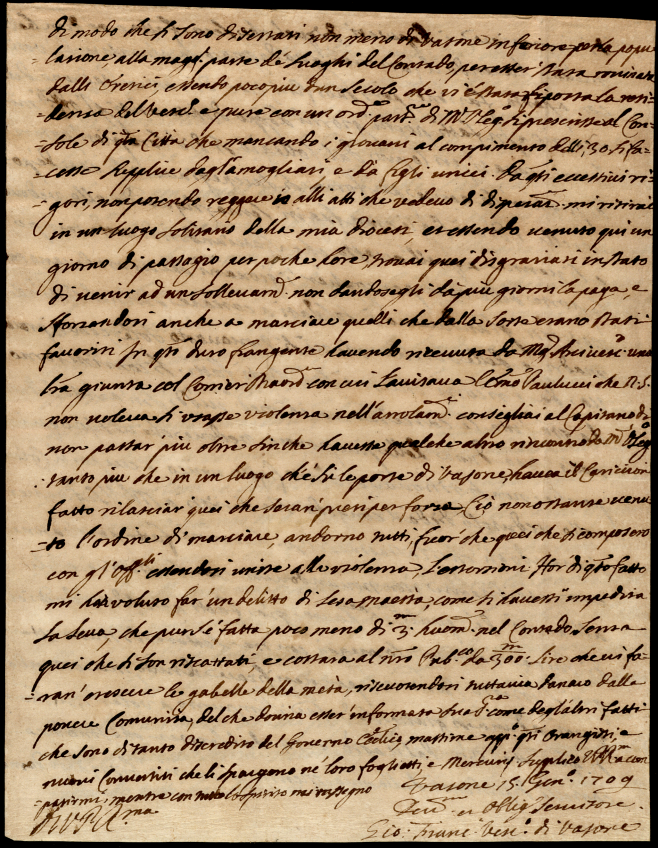 di modo che si sono diserrati non meno di Vasone inferiore per la popu
=lazione alla magr. parte de luoghi del Contado, per esser stata rovinata
dalli Eretici, essendo poco più d'un Secolo che vi è stata riposta la resi
=denza del Vesc.o e pure con un ord.e part.re di M.r V.Leg.o si prescrisse al Con-
=sole di q.ta Città che mancando i giovani al compimento delli 30. si fa-
=cesse supplire dagl'amogliati, e da figli unici. Da q.ti eccessivi ri-
=gori, non potendo reggere io alli atti che vedevo di disperaz.e mi ritirai
in un luogo solitario della mia diocesi, et essendo venuto qui un
giorno di passagio per poche hore, trovai quei disgraziati in stato
di venir ad un sollevam.to non dandosegli da più giorni la paga, e
sforzandosi anche a marciare quelli che dalla sorte erano stati
favoriti. In q.to duro frangente havendo ricevuta da Mg.r Arcivesc.o una
l'ra giunta col Corrier straord.o con cui l'avisava l'Em.o Paulucci che N.S.
non voleva si usasse violenza nell'arrolam.to consigliai al Capitano di
non passar più oltre sinche havesse qualche altro riscontro da M.r V.Leg.o
tanto più che in un luogo ché sù le porte di Vasone, haveva il
fatto rilasciar quei che s'eran presi per forza, Ciò non ostante venu
=to l'ordine di marciare, andorno tutti, fuor che quei che si composero
con gl'Off.li essendosi unite alla violenza, l'estorsioni. Hor di q.to fatto
mi hà voluto far un delitto di lesa maestà, come si havessi impedita
la leva, che pur s'è fatta poco meno di 3.m huom.i nel Contado, senza
quei che si son riscattati, e costarà al n'ro Pub.co da 300.m lire che ci fa-
=ran' crescere le gabelle della metà, riscuotendosi tuttavia danaro dalle
povere Comunità, del che dovria esser informata Sua S.tà come degl'altri fatti
che sono di tanto discredito del Governo Ecc.co, massime app.o q.ti Orangisti, e
nuovi Convertiti che li spargono né loro foglietti e Mercurij. Supplico V.S. Ill.ma a com
=patirmi, mentre con tutto lo spirito mi rassegno
Di V.S. Ill.ma
Vasone 15. Gen.o 1709
Dev.mo et Obblig.mo Servitore
Gio: Franc.o Vesc.o di Vasone